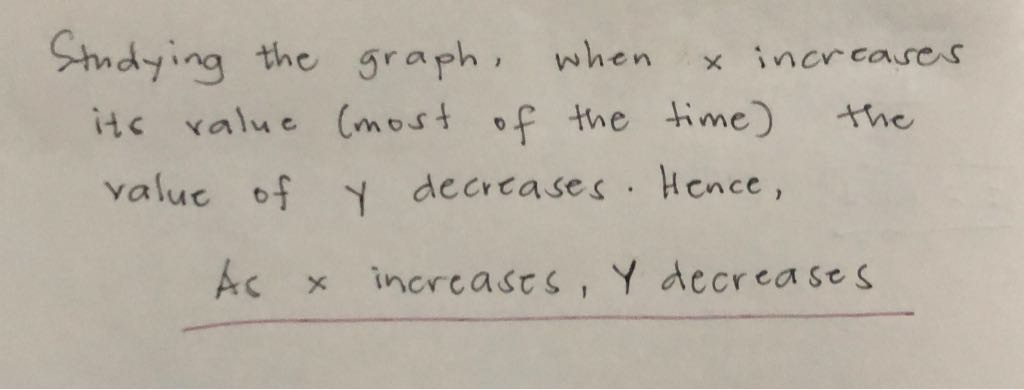 Studying the graph, when x increases
its value (most of the time) the
value of y decreases. Hence,
As x increases, Y decreases